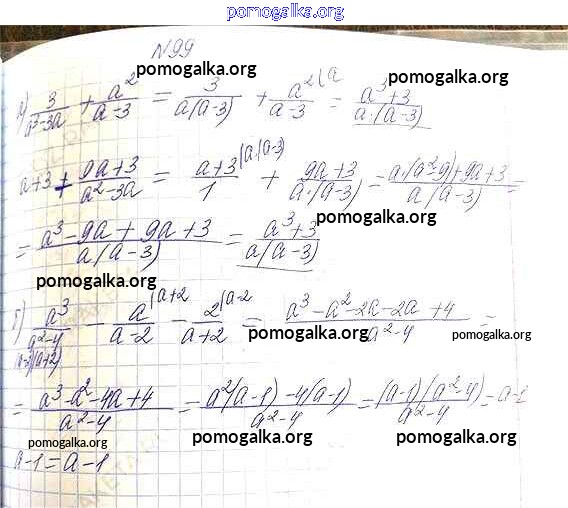 pomogalka.org
N99
pomogalka.org pomogalka.org
а) 3/(a²-3a) + a²/(a-3) = 3/(a(a-3)) + a²(a/(a-3) = (a³+3)/(a·(a-3))
pomogalka.org
a+3 + (9a+3)/(a²-3a) = (a+3)/1 (a·(a-3) + (9a+3)/(a·(a-3)) = (a·(a²-9)+9a+3)/(a(a-3)) =
pomogalka.org
= (a³-9a+9a+3)/(a(a-3)) = (a³+3)/(a(a-3))
pomogalka.org
б) a³/(a²-4) - a/(a-2) (a+2 - 2/(a+2) (a-2 = (a³-a²-2a-2a+4)/(a²-4) =
(a-2)(a+2)
pomogalka.org pomogalka.org pomogalka.org
= (a³-a²-4a+4)/(a²-4) = (a²(a-1)-4(a-1))/(a²-4) = ((a-1)(a²-4))/(a²-4) = a-1
pomogalka.org pomogalka.org pomogalka.org
a-1=a-1
pomogalka.org